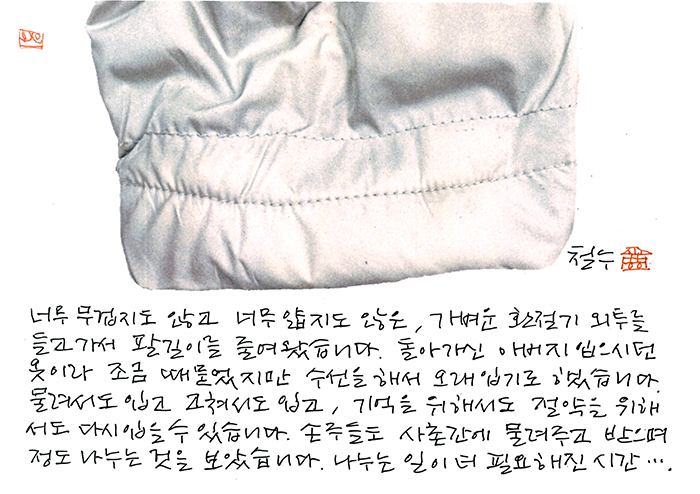 철수
너무 무겁지도 않고 너무 얇지도 않은, 가벼운 환절기 외투를
들고가서 팔길이를 줄여왔습니다. 돌아가신 아버지 입으시던
옷이라 조금 때묻었지만 수선을 해서 오래 입기로 하였습니다.
물려서도 입고 고쳐서도 입고, 기억을 위해서도 절약을 위해
서도 다시 입을 수 있습니다. 손주들도 사촌간에 물려주고 받으며
정도 나누는 것을 보았습니다. 나누는 일이 더 필요해진 시간….